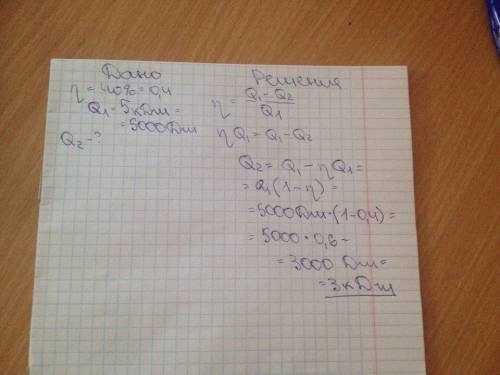 Дано
η = 40% = 0,4
Q₁ = 5 кДж =
= 5000 Дж
Q₂ - ?
Решения
η = Q₁ - Q₂ / Q₁
η Q₁ = Q₁ - Q₂
Q₂ = Q₁ - η Q₁ =
= Q₁ (1 - η) =
= 5000 Дж · (1 - 0,4) =
= 5000 · 0,6 =
= 3000 Дж =
= 3 кДж